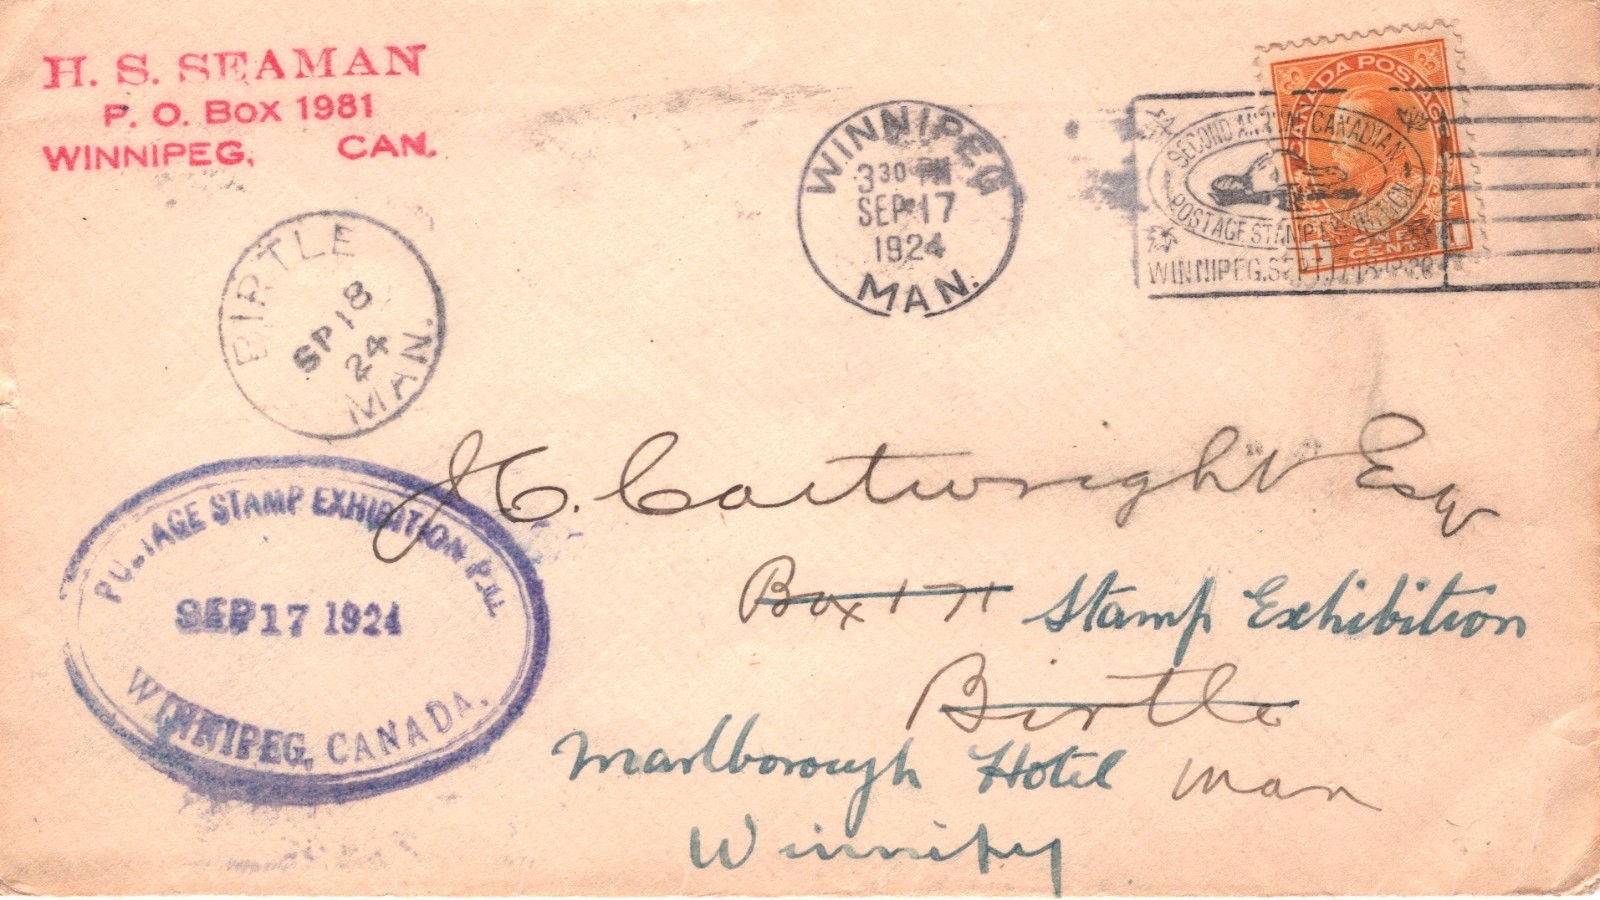 H. S. SEAMAN
P. O. Box 1981
WINNIPEG, CAN.
WINNIPEG
3 30 PM
SEP 17
1924
MAN.
CANADA POSTAGE
ONE
CENT
SECOND CANADIAN
POSTAGE STAMP EXHIBITION
WINNIPEG, SEPT. 17
BIRTLE
SP 18
24
MAN.
POSTAGE STAMP EXHIBITION
SEP 17 1924
WINNIPEG, CANADA.
H. Cartwright Esq
Box 171 Stamp Exhibition
Birtle
Marlborough Hotel Man
Winnipeg